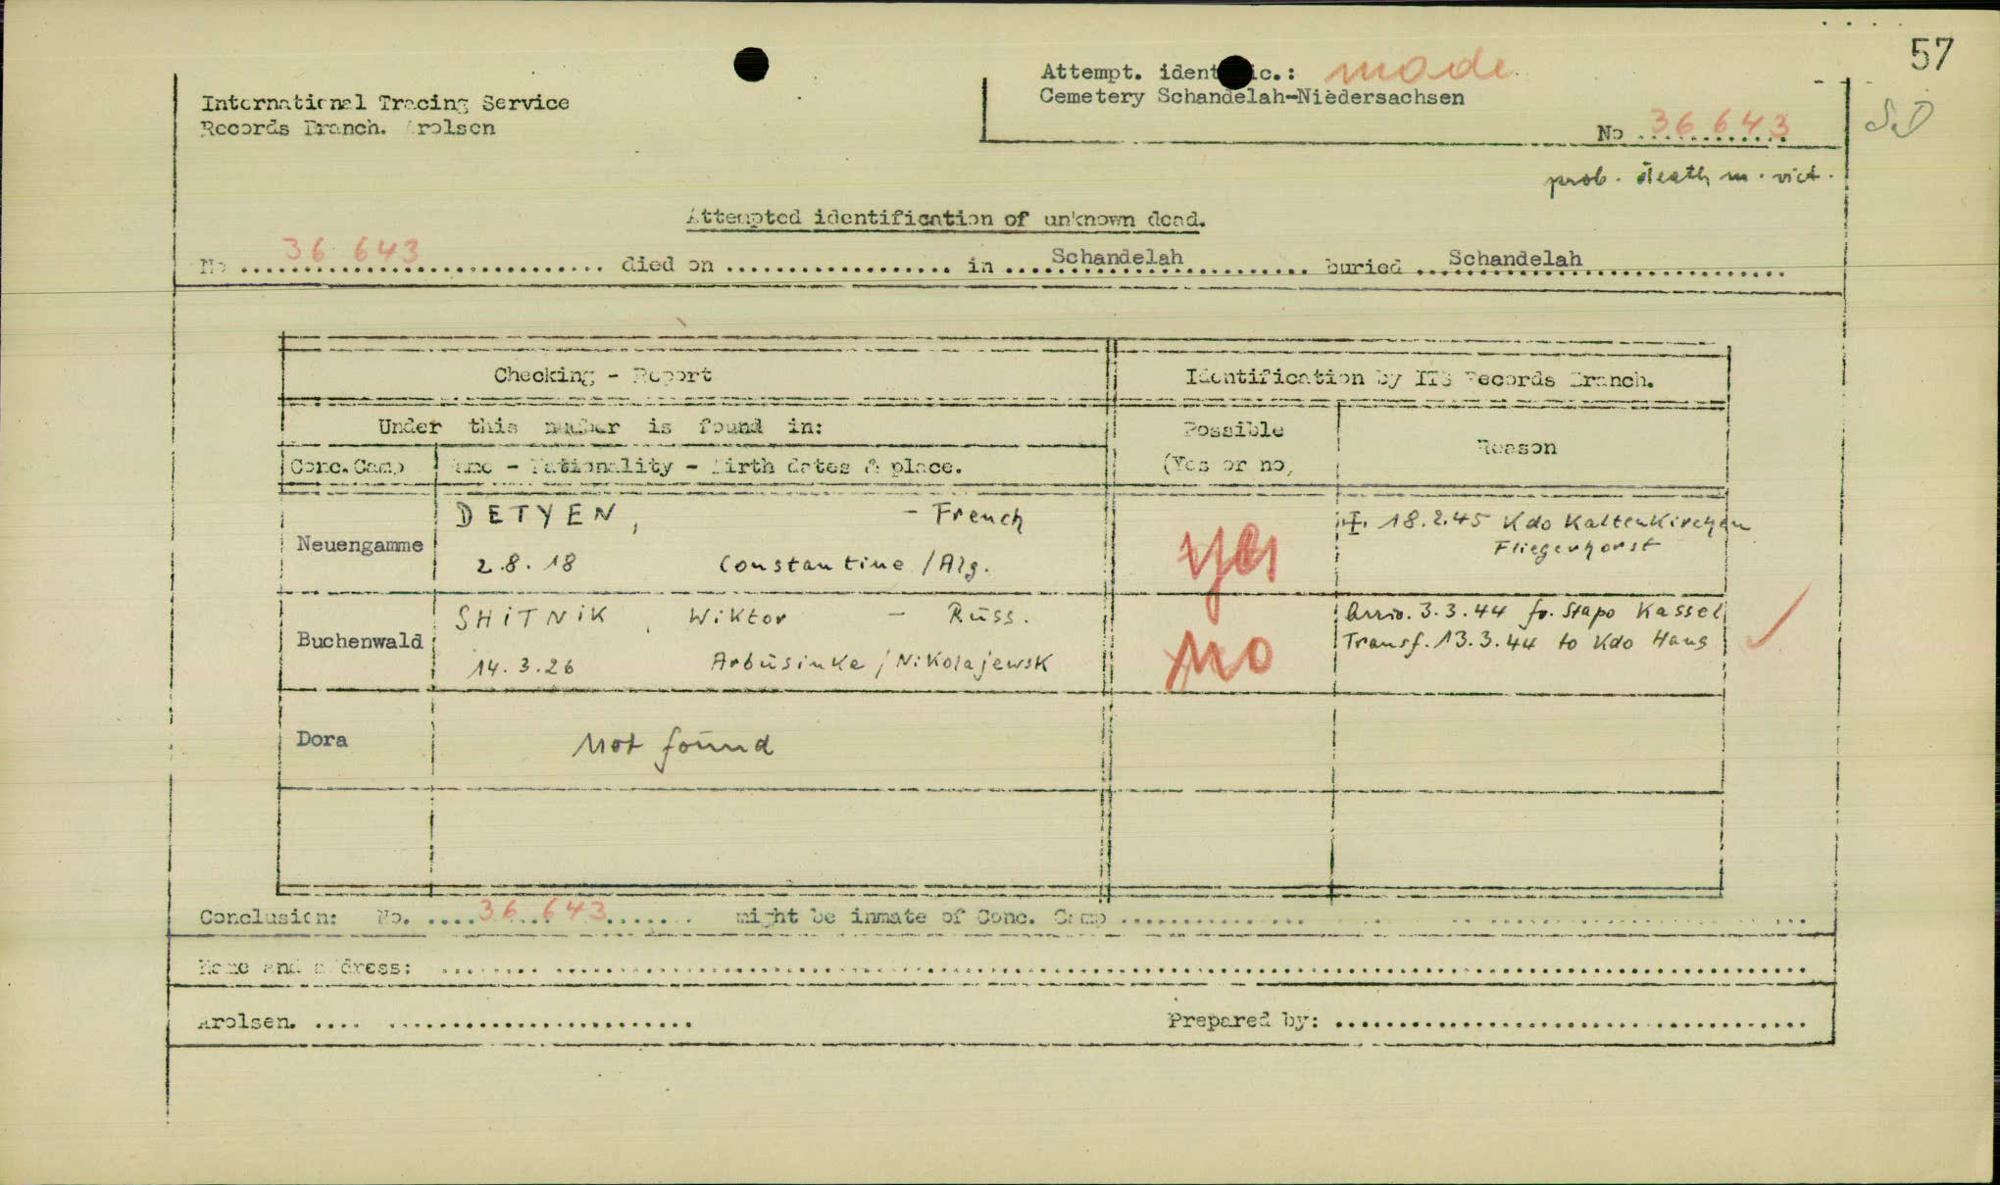 57
Attempt. identific.: made
International Tracing Service
Cemetery Schandelah-Niedersachsen
Records Branch. Arolsen
No 36 643
prob. death m. vict.
Attempted identification of unknown dead.
No 36 643 died on .................. in Schandelah buried Schandelah
Checking - Report
Identification by ITS Records Branch.
Under this number is found in:
Possible
(Yes or no)
Reason
Conc.Camp Name - Nationality - Birth dates & place.
Neuengamme
DETYEN, - French
2.8.18 Constantine /Alg.
yes
18.2.45 Kdo Kaltenkirchen
Fliegerhorst
Buchenwald
SHITNIK, Wiktor - Russ.
14.3.26 Arbusinke / Nikolajewsk
no
Arriv. 3.3.44 fr. Stapo Kassel
Transf. 13.3.44 to Kdo Hans
Dora
Not found
Conclusion: No. 36 643 might be inmate of Conc. Camp ..............
Name and address: ..............
Arolsen. ..............
Prepared by: ..............